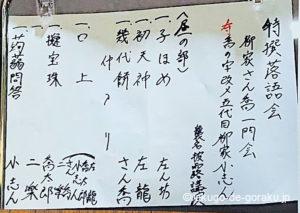 特撰落語会
柳家さん喬一門会
喬の字改メ五代目柳家小志ん
襲名披露口演
〈昼の部〉
一、子ほめ 左ん坊
一、初天神 左龍
一、幾代餅 さん喬
仲入り
一、口上
一、擬宝珠 喬太郎
二楽
一、蒟蒻問答 小志ん
rakugo-de-goraku.jp